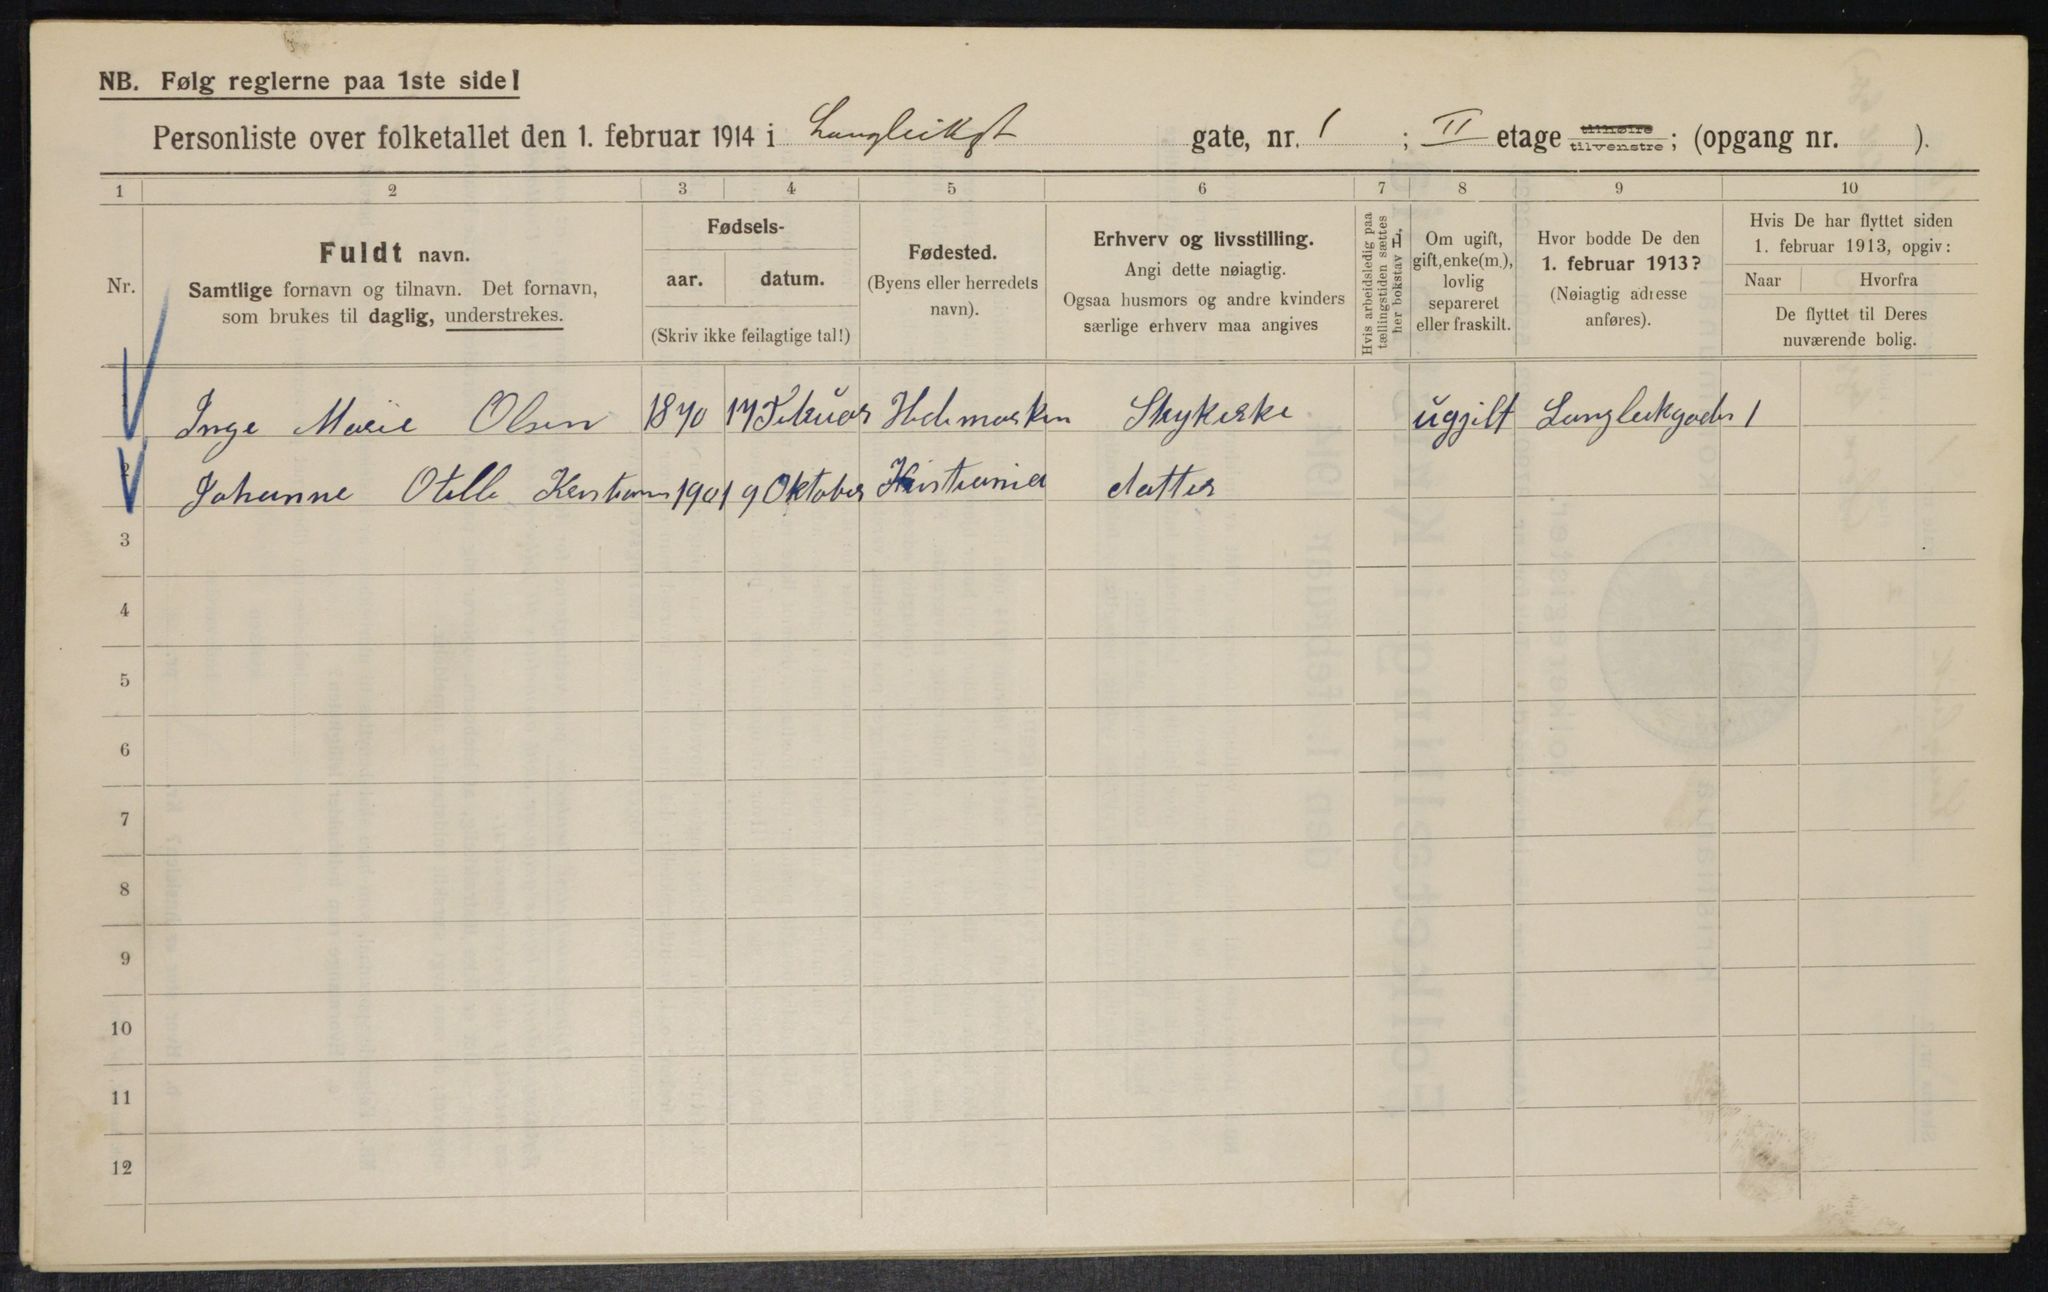 NB. Følg reglerne paa 1ste side!
Personliste over folketallet den 1. februar 1914 i Langleiksgt gate, nr. 1 ; II etage tilhøire tilvenstre; (opgang nr. ).
1 2 3 4 5 6 7 8 9 10
Nr.
Fuldt navn.
Samtlige fornavn og tilnavn. Det fornavn,
som brukes til daglig, understrekes.
Fødsels-
aar. datum.
(Skriv ikke feilagtige tal!)
Fødested.
(Byens eller herredets
navn).
Erhverv og livsstilling.
Angi dette nøiagtig.
Ogsaa husmors og andre kvinders
særlige erhverv maa angives
Hvis arbeidsledig paa
tællingstiden sættes
her bokstav L.
Om ugift,
gift, enke(m.),
lovlig
separeret
eller fraskilt.
Hvor bodde De den
1. februar 1913?
(Nøiagtig adresse
anføres).
Hvis De har flyttet siden
1. februar 1913, opgiv:
Naar Hvorfra
De flyttet til Deres
nuværende bolig.
Inge Marie Olsen 1870 17 Februar Hedemarken ugjilt 1
2 Johanne 1901 9 Oktober Kristiania datter
3
4
5
6
7
8
9
10
11
12